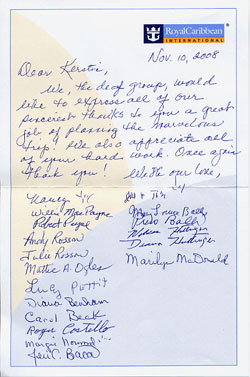 RoyalCaribbean
INTERNATIONAL
Nov. 10, 2008
Dear Kerstin,
We, the deaf group, would
like to express all of our
sincerest thanks to you a great
job of planning the marvelous
trip! We also appreciate all
of your hard work. Once again
Thank you! With our love,
Nancy
Willie Mae Payne
Robert Payne
Andy Rosson
Julie Rosson
Mattie A. Oglès
Lucy Pettit
Diana Benham
Carol Beck
Roger Costello
Margie
Baca
Mary Louise Balla
Balla
Donna
Marilyn McDonald